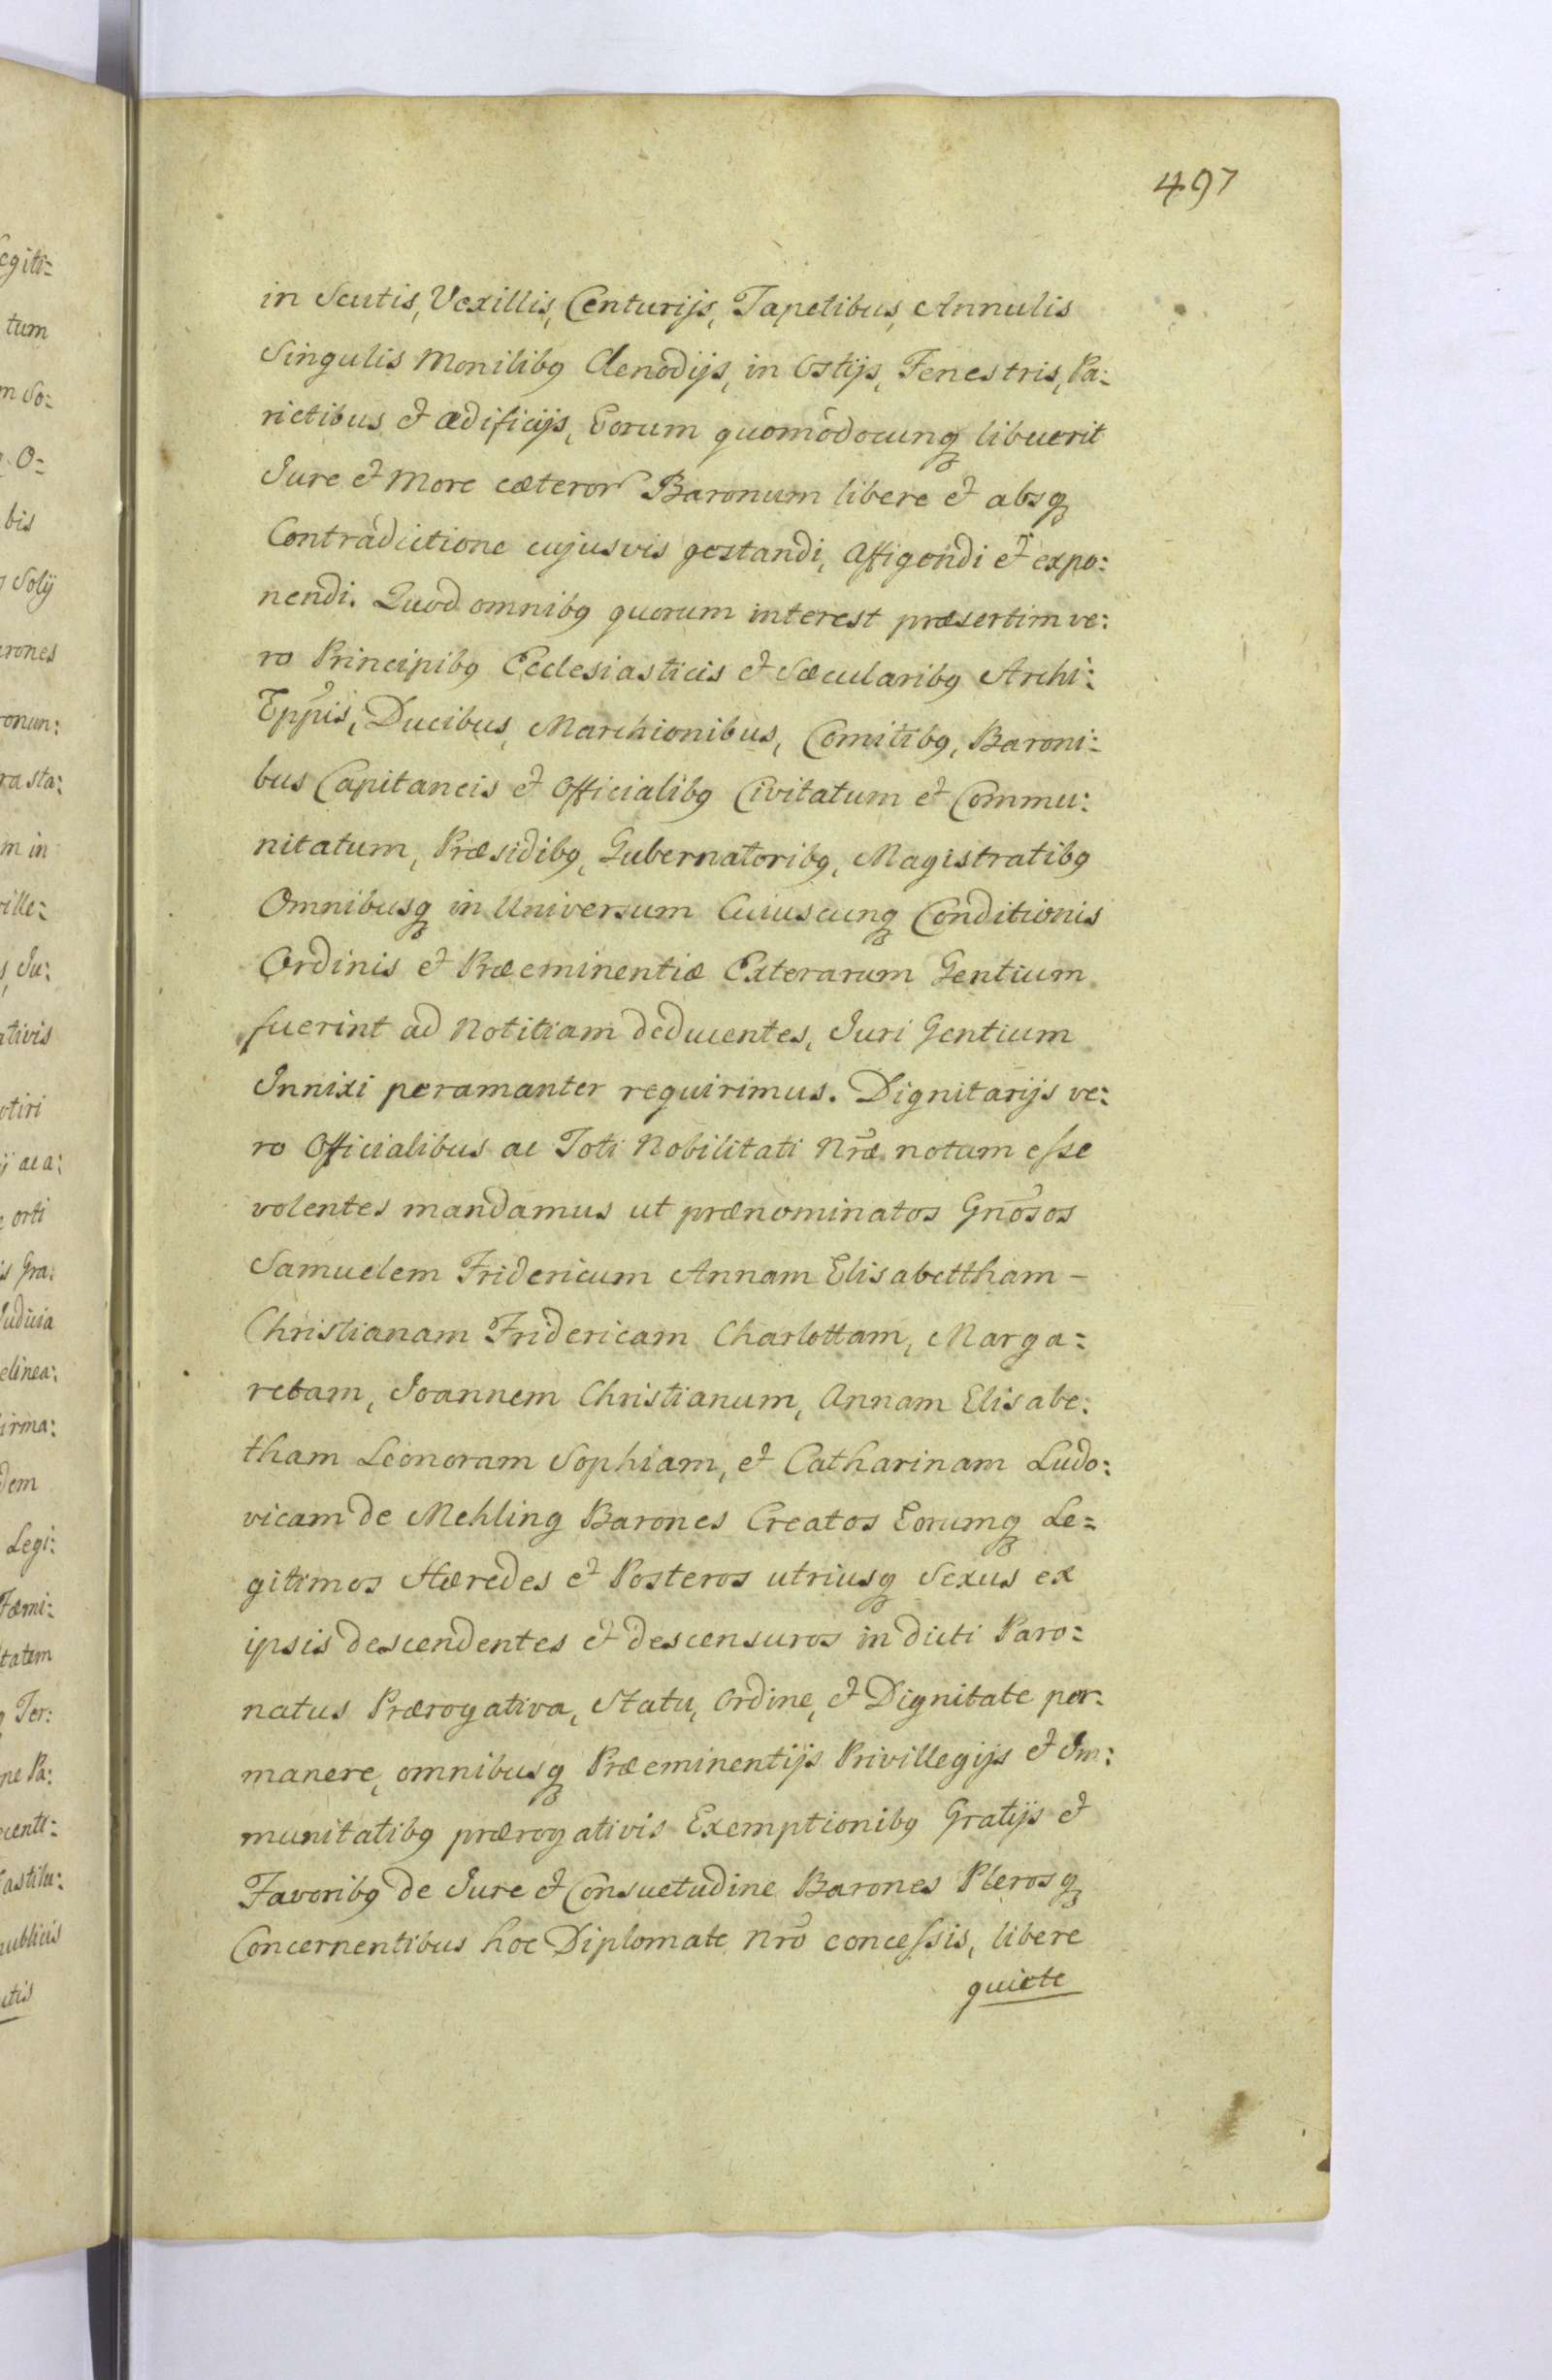 497
in Scutis, Vexillis, Centurijs, Tapetibus, Annulis
Singulis Monilibꝯ Clenodijs, in Ostijs, Fenestris, Pa:
rietibus et ædificijs, Eorum quomodocunqꝫ libuerit
Jure et More cæteror Baronum libere et absqꝫ
Contradictione cujusvis gestandi, Affigendi et expo:
nendi. Quod omnibꝯ quorum interest præsertim ve:
ro Principibꝯ Ecclesiasticis et Sæcularibꝯ Archi:
Eppis, Ducibus, Marchionibus, Comitibꝯ, Baroni:
bus Capitaneis et Officialibꝯ Civitatum et Commu:
nitatum, Præsidibꝯ, Gubernatoribꝯ, Magistratibꝯ
Omnibusqꝫ in Universum Cuiuscunqꝫ Conditionis
Ordinis et Præeminentiæ Exterarum Gentium
fuerint ad Notitiam deducentes, Juri Gentium
Innixi peramanter requirimus. Dignitarijs ve:
ro Officialibus ac Toti Nobilitati Nræ notum esse
volentes mandamus ut prænominatos Gnosos
Samuelem Fridericum Annam Elisabettham –
Christianam Fridericam Charlottam, Marga:
retam, Joannem Christianum, Annam Elisabe:
tham Leonoram Sophiam, et Catharinam Ludo:
vicam de Mehling Barones Creatos Eorumqꝫ Le:
gitimos Hæredes et Posteros utriusqꝫ Sexus ex
ipsis descendentes et descensuros in dicti Paro:
natus Prærogativa, Statu, Ordine, et Dignitate per:
manere, omnibusqꝫ Præeminentijs Privillegijs et Im:
munitatibꝯ prærogativis Exemptionibꝯ Gratijs et
Favoribꝯ de Jure et Consuetudine Barones Plerosqꝫ
Concernentibus hoc Diplomate Nro concessis, libere
quiete